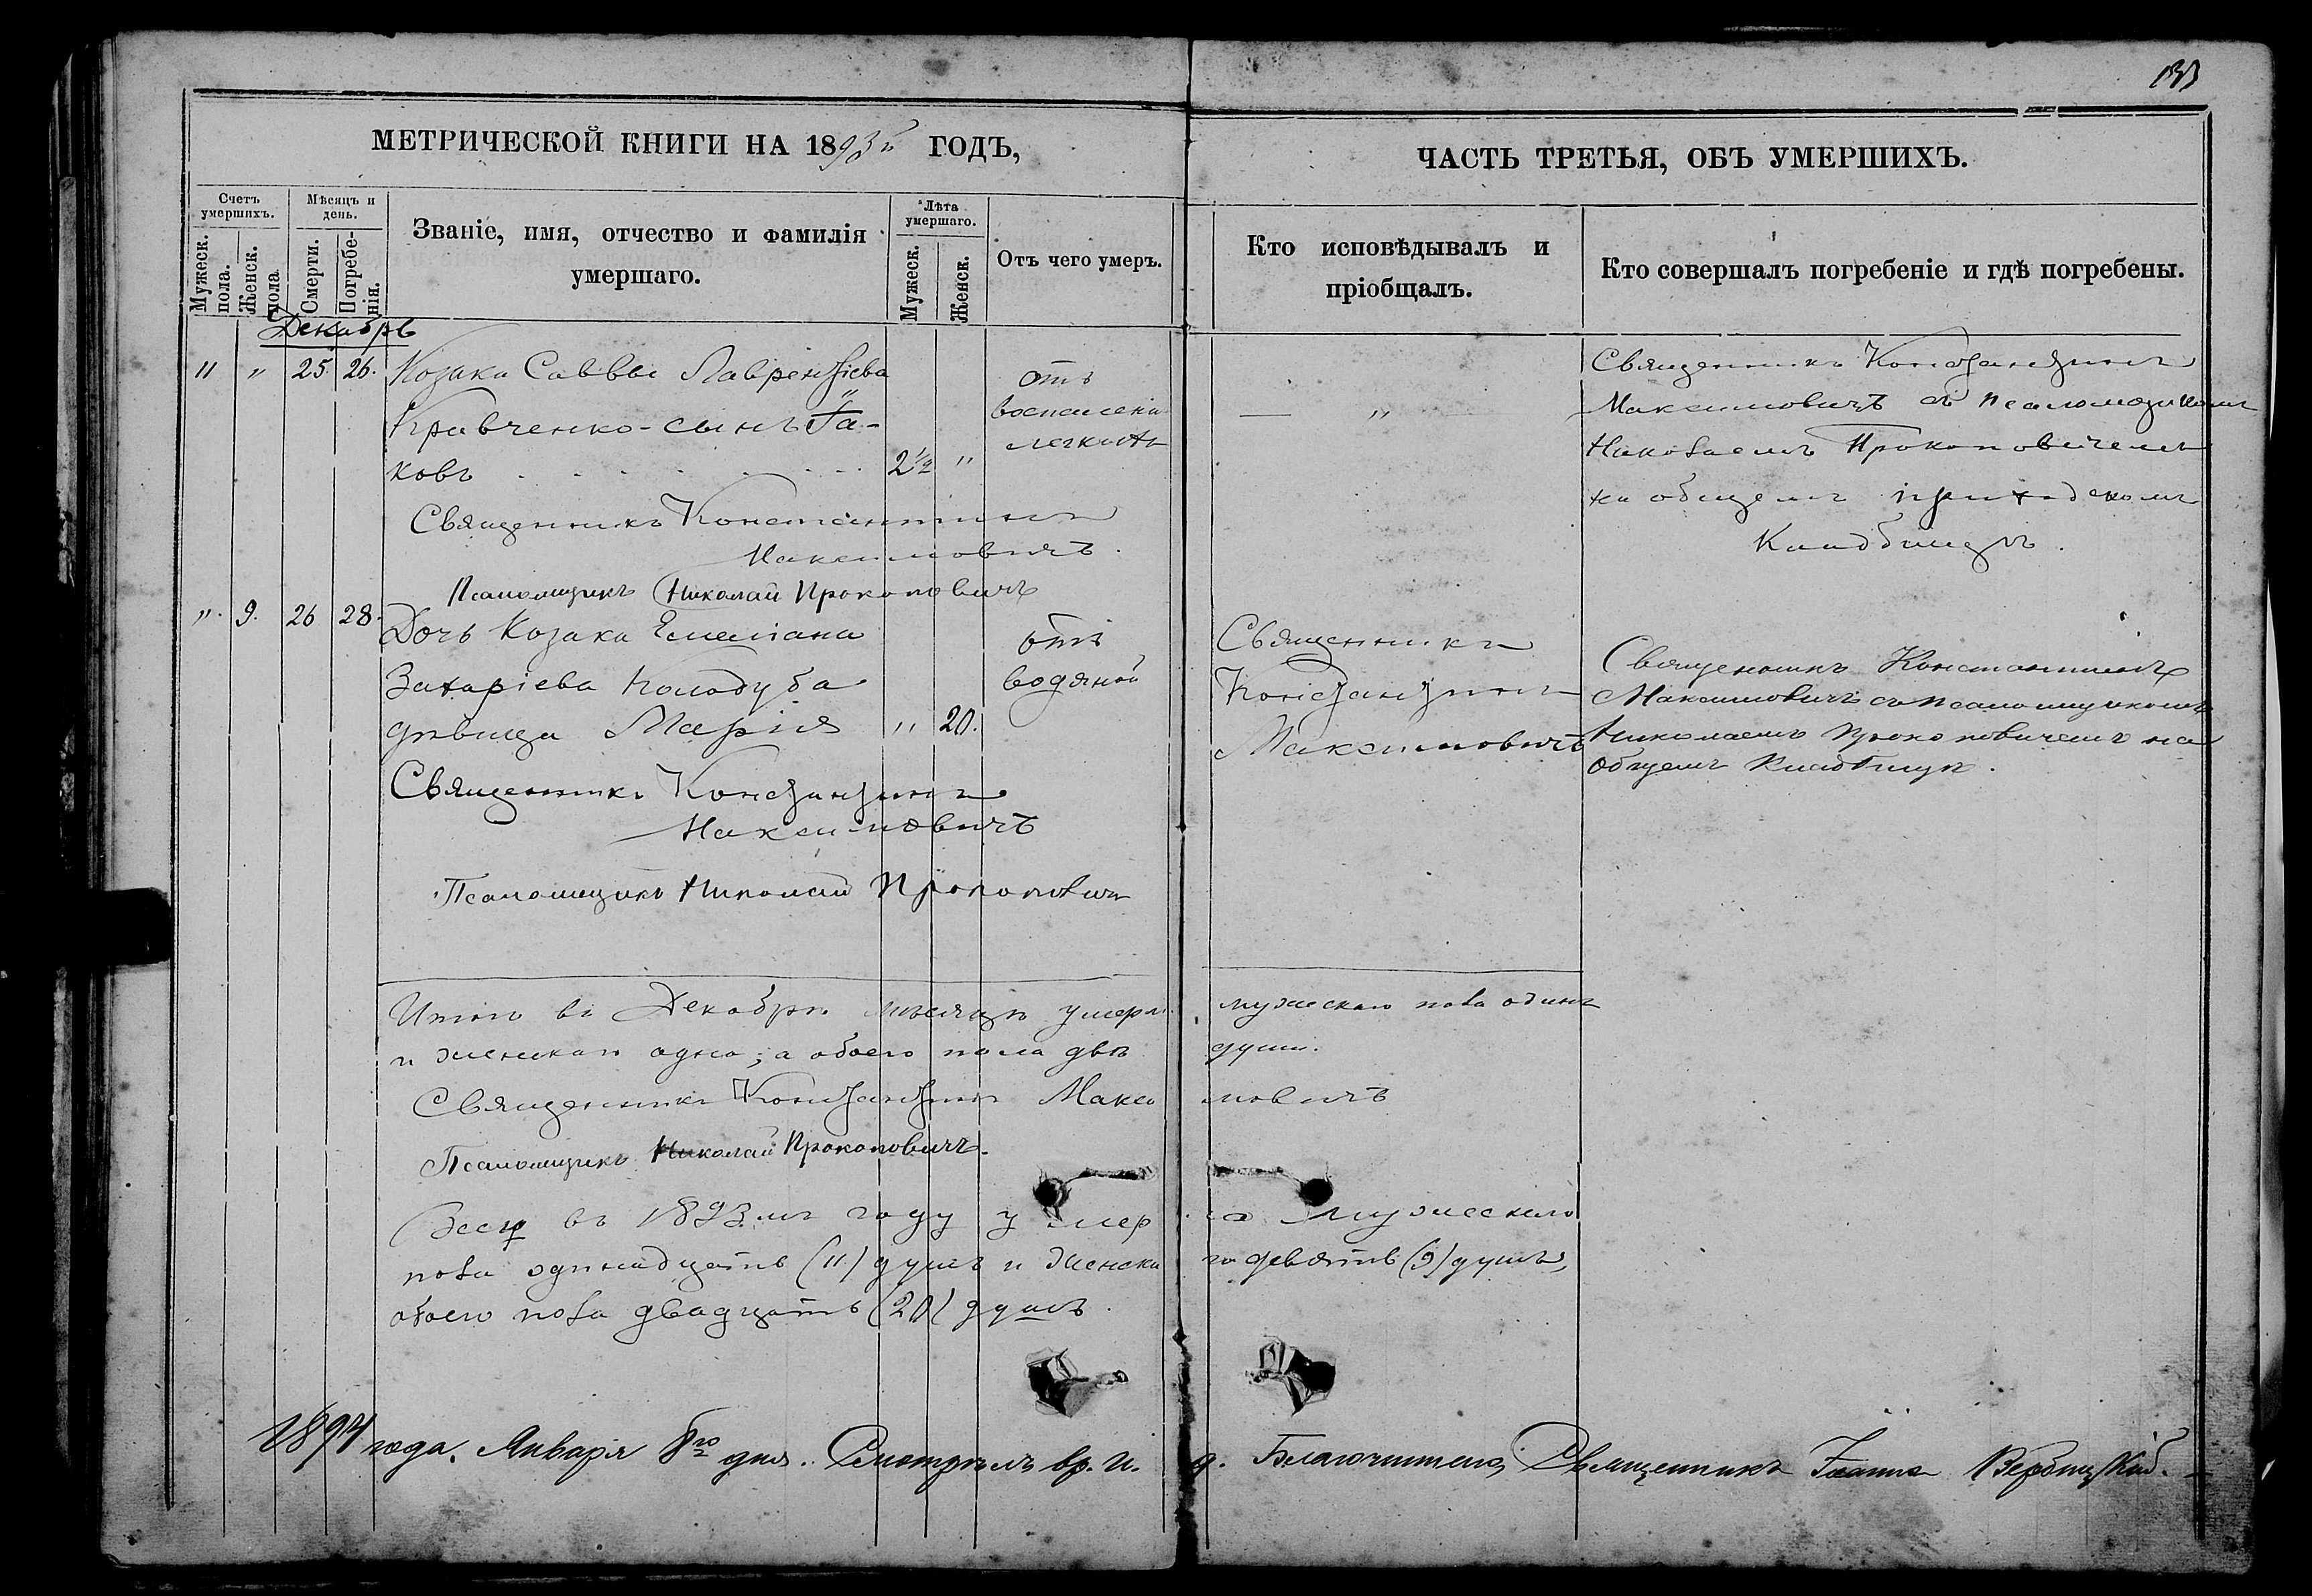 133
МЕТРИЧЕСКОЙ КНИГИ НА 1893й ГОДЪ,
Счетъ умершихъ.
Мужеск. пола.
Женск. пола
Мѣсяцъ и день.
Смерти.
Погребенія.
Званіе, имя, отчество и фамилія
умершаго.
Лѣта умершаго.
Мужеск.
Женск.
Отъ чего умеръ.
Декабрь
11 " 25. 26. Козака Саввы Лаврентіева
Кравченко-сынъ Іа-
ковъ 2½ "
отъ
воспаленія
легкихъ
Священникъ Константинъ
Максимовичъ.
Псаломщикъ Николай Прокоповичъ
". 9. 26 28. Дочь Козака Емеліана
Захаріева Колодуба
дѣвица Марія " 20.
отъ
водяной
Священникъ Константинъ
Максимовичъ
Псаломщикъ Николай Прокоповичъ
ЧАСТЬ ТРЕТЬЯ, ОБЪ УМЕРШИХЪ.
Кто исповѣдывалъ и
пріобщалъ.
Кто совершалъ погребеніе и гдѣ погребены.
— " —
Священникъ Константинъ
Максимовичъ съ псаломщикомъ
Николаемъ Прокоповичемъ
на общемъ приходскомъ
Кладбищѣ.
Священникъ
Константинъ
Максимовичъ
Священникъ Константинъ
Максимовичъ съ псаломщикомъ
Николаемъ Прокоповичемъ на
общемъ Кладбищѣ.
Итого въ Декабрѣ мѣсяцѣ умерло мужескаго пола одинъ
и женскаго одна; а обоего пола двѣ души.
Священникъ Константинъ Максимовичъ
Псаломщикъ Николай Прокоповичъ.
Всего въ 1893мъ году умерло мужескаго
пола одинадцать (11) душъ и женскаго девять (9) душъ,
обоего пола двадцать (20) душъ.
1894 года, Января 8го дня. Смотрѣлъ вр. и. д. Благочиннаго, Священникъ Іоаннъ Вербицкій.